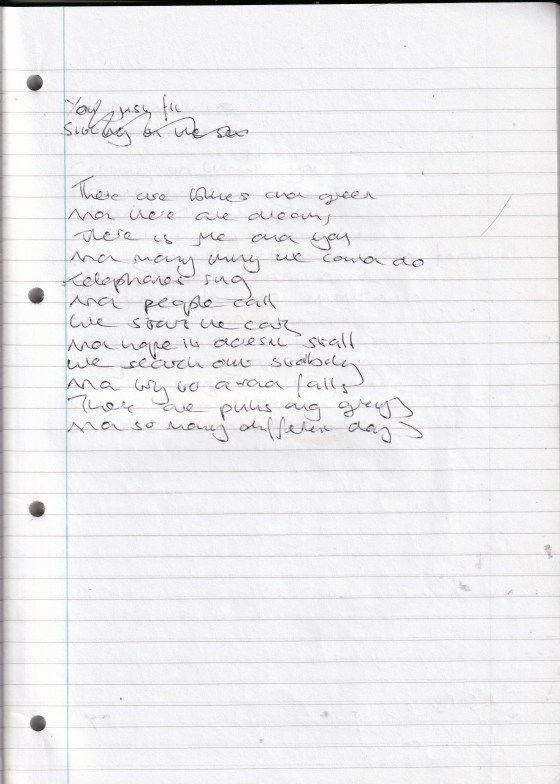 You just fit
There are blues and green
And there are dreams
There is me and you
And many thing we could do
telephones ring
And people call
We start the car
And hope it doesnt stall
We search out
And try to avoid falls
There are pinks and greys
And so many different days